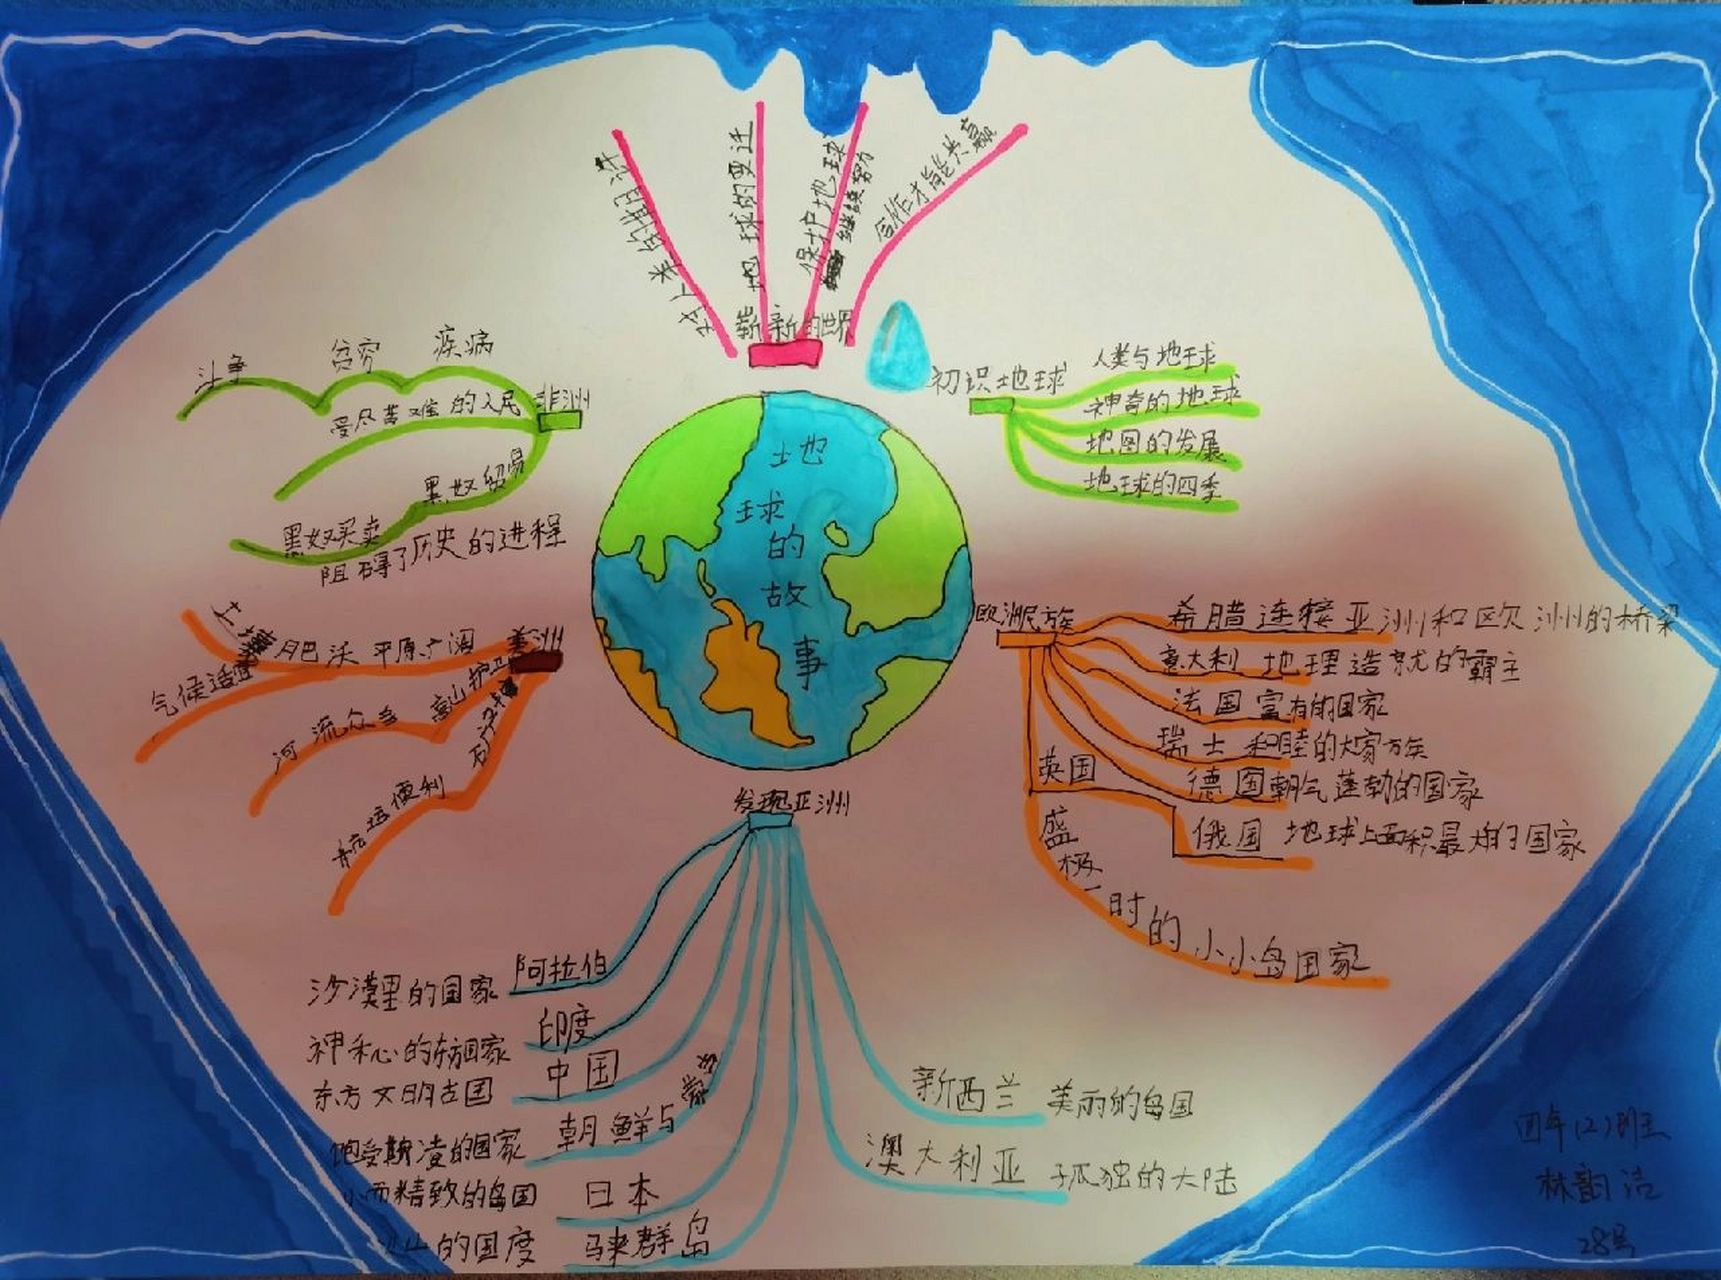 地球的故事
崭新的世界
地球的变迁
保护地球
继续努力
合作才能共赢
初识地球
人类与地球
神奇的地球
地图的发展
地球的四季
非洲
疾病
贫穷
斗争
受尽苦难的人民
黑奴贸易
黑奴买卖
阻碍了历史的进程
美洲
土壤肥沃 平原广阔
气候适宜
高山护卫
河流众多
航运便利
欧洲民族
希腊 连接亚洲和欧洲的桥梁
意大利 地理造就的霸主
法国 富有的国家
瑞士 和睦的大家族
德国 朝气蓬勃的国家
俄国 地球上面积最大的国家
英国
盛极一时的小小岛国家
发现亚洲
沙漠里的国家 阿拉伯
神秘的东方国家 印度
东方文明古国 中国
饱受欺凌的国家 朝鲜与
小而精致的岛国 日本
火山的国度 马来群岛
新西兰 美丽的岛国
澳大利亚 孤独的大陆
四年(2)班
林韵洁
28号